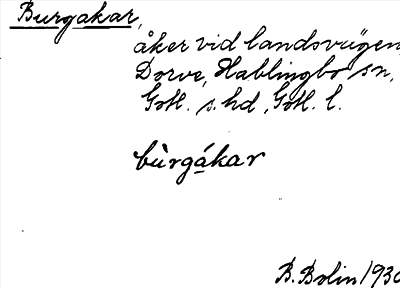 Burgakar,
åker vid landsvägen,
Dorve, Hablingbo sn,
Gotl. s. hd, Gotl. l.
bùrgákar
B. Bolin 1930